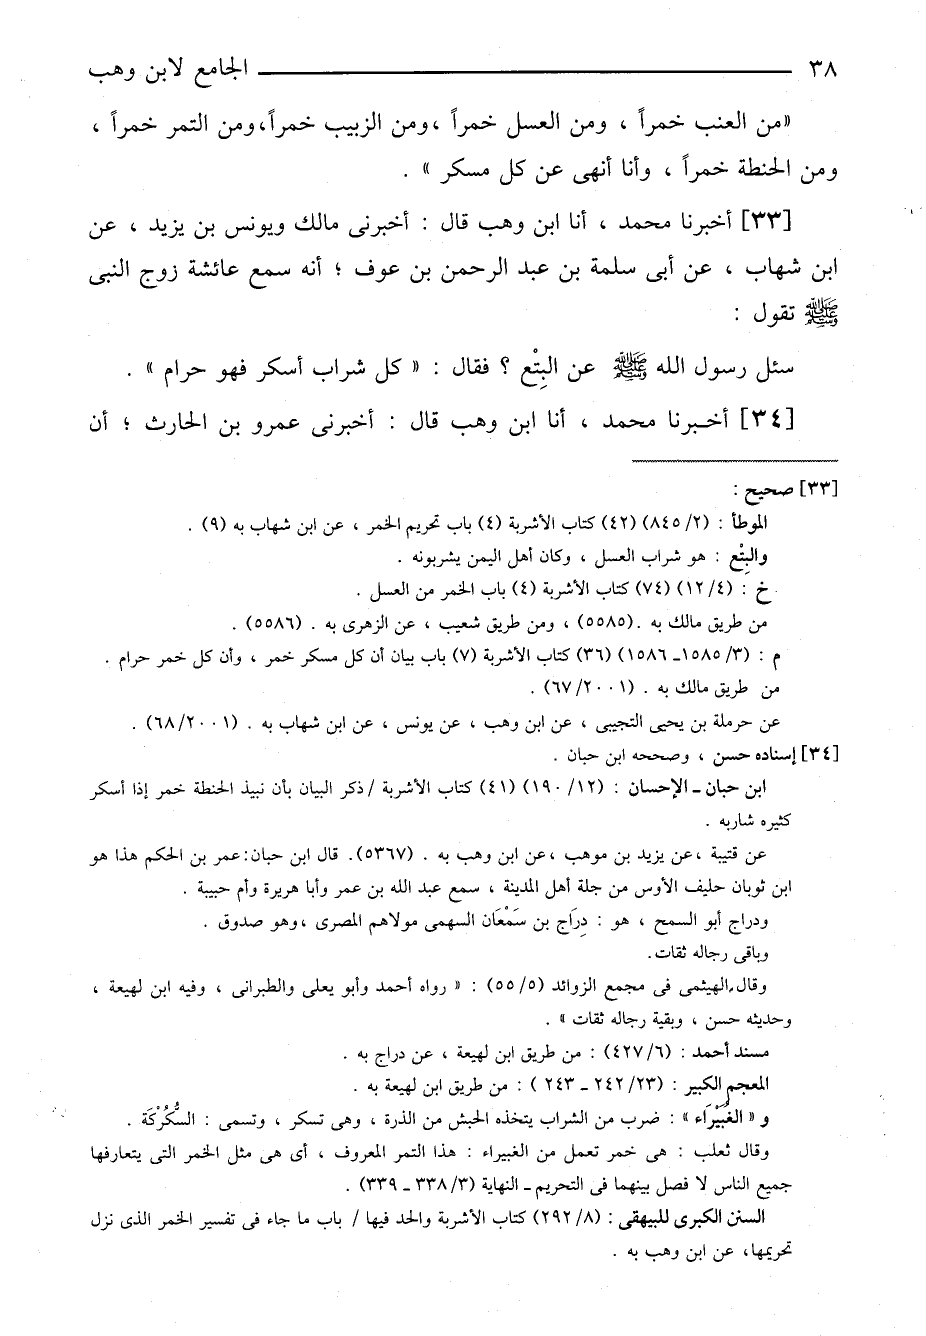 ٣٨ الجامع لابن وهب
«من العنب خمراً ، ومن العسل خمراً ،ومن الزبيب خمراً،ومن التمر خمراً ،
ومن الحنطة خمراً ، وأنا أنهى عن كل مسكر » .
[٣٣] أخبرنا محمد ، أنا ابن وهب قال : أخبرنى مالك ويونس بن يزيد ، عن
ابن شهاب ، عن أبى سلمة بن عبد الرحمن بن عوف ؛ أنه سمع عائشة زوج النبى
ﷺ تقول :
سئل رسول الله ﷺ عن البِتْع ؟ فقال : « كل شراب أسكر فهو حرام » .
[٣٤] أخـبرنا محمد ، أنا ابن وهب قال : أخبرنى عمرو بن الحارث ؛ أن
[٣٣] صحيح :
الموطأ : (٢/ ٨٤٥) (٤٢) كتاب الأشربة (٤) باب تحريم الخمر ، عن ابن شهاب به (٩) .
والبِتْع : هو شراب العسل ، وكان أهل اليمن يشربونه .
خ : (٤/ ١٢) (٧٤) كتاب الأشربة (٤) باب الخمر من العسل .
من طريق مالك به .(٥٥٨٥) ، ومن طريق شعيب ، عن الزهرى به . (٥٥٨٦) .
م : (٣/ ١٥٨٥ـ ١٥٨٦) (٣٦) كتاب الأشربة (٧) باب بيان أن كل مسكر خمر ، وأن كل خمر حرام .
من طريق مالك به . (٦٧/٢٠٠١) .
عن حرملة بن يحيى التجيبى ، عن ابن وهب ، عن يونس ، عن ابن شهاب به . (٦٨/٢٠٠١) .
[٣٤] إسناده حسن ، وصححه ابن حبان .
ابن حبان ـ الإحسان : (١٢/ ١٩٠) (٤١) كتاب الأشربة /ذكر البيان بأن نبيذ الحنطة خمر إذا أسكر
كثيره شاربه .
عن قتيبة ،عن يزيد بن موهب ،عن ابن وهب به . (٥٣٦٧). قال ابن حبان:عمر بن الحكم هذا هو
ابن ثوبان حليف الأوس من جلة أهل المدينة ، سمع عبد الله بن عمر وأبا هريرة وأم حبيبة .
ودراج أبو السمح ، هو : دِرَاج بن سَمْعَان السهمى مولاهم المصرى ،وهو صدوق .
وباقى رجاله ثقات.
وقال الهيثمى فى مجمع الزوائد (٥/ ٥٥) : « رواه أحمد وأبو يعلى والطبرانى ، وفيه ابن لهيعة ،
وحديثه حسن ، وبقية رجاله ثقات » .
مسند أحمد : (٦/ ٤٢٧) : من طريق ابن لهيعة ، عن دراج به .
المعجم الكبير : (٢٣/ ٢٤٢ ـ ٢٤٣ ) : من طريق ابن لهيعة به .
و « الغُبَيْرَاء » : ضرب من الشراب يتخذه الحبش من الذرة ، وهى تسكر ، وتسمى : السُّكُرْكَة .
وقال ثعلب : هى خمر تعمل من الغبيراء : هذا التمر المعروف ، أى هى مثل الخمر التى يتعارفها
جميع الناس لا فصل بينهما فى التحريم ـ النهاية (٣/ ٣٣٨ ـ ٣٣٩) .
السنن الكبرى للبيهقى : (٨/ ٢٩٢) كتاب الأشربة والحد فيها / باب ما جاء فى تفسير الخمر الذى نزل
تحريمها، عن ابن وهب به .